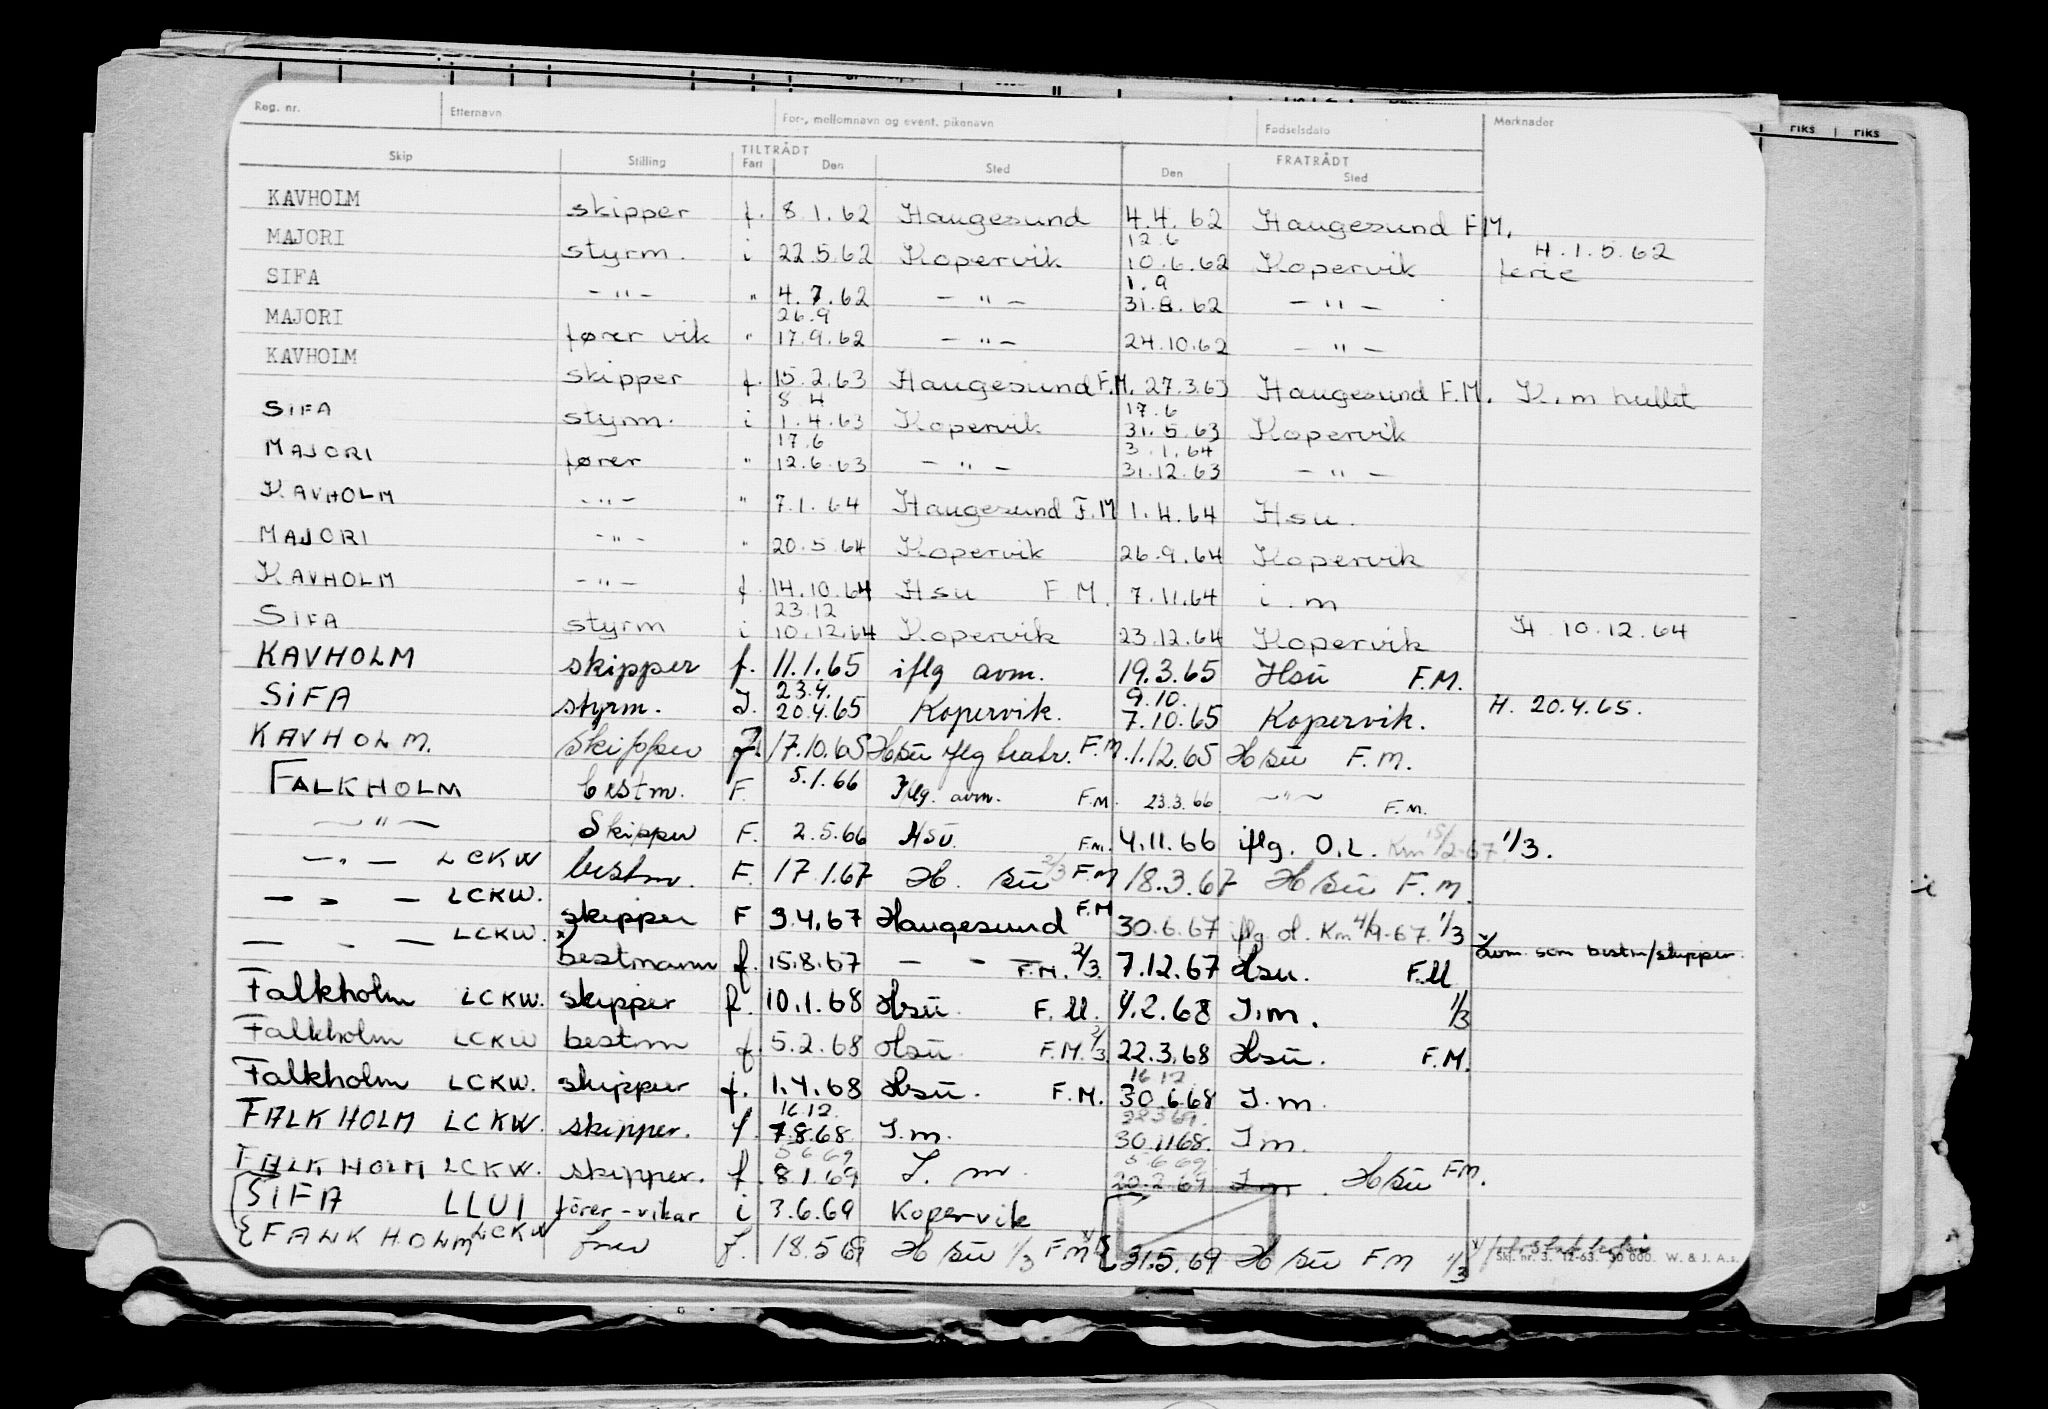 Reg. nr. Etternavn For-, mellomnavn og event. pikenavn Fødselsdato Merknader
TILTRÅDT FRATRÅDT
Skip Stilling Fart Den Sted Den Sted
KAVHOLM skipper f. 8.1.62 Haugesund 4.4.62 Haugesund F.M. H. 1.5.62
MAJORI styrm. i 22.5.62 Kopervik 12.6 10.6.62 Kopervik ferie
SIFA - " - " 4.7.62 - " - 1.9 31.8.62 - " -
MAJORI fører vik " 26.9 17.9.62 - " - 24.10.62 - " -
KAVHOLM skipper f. 15.2.63 Haugesund F.M. 27.3.63 Haugesund F.M. K.m hullet
SIFA styrm. i 8.4 1.4.63 Kopervik 17.6 31.5.63 Kopervik
MAJORI fører " 17.6 12.6.63 - " - 3.1.64 31.12.63 - " -
KAVHOLM - " - " 7.1.64 Haugesund F.M 1.4.64 Hsu.
MAJORI - " - " 20.5.64 Kopervik 26.9.64 Kopervik
KAVHOLM - " - f 14.10.64 Hsu F.M. 7.11.64 i.m
SIFA styrm i 23.12 10.12.64 Kopervik 23.12.64 Kopervik H. 10.12.64
KAVHOLM skipper f. 11.1.65 iflg avm. 19.3.65 Hsu F.M.
SIFA styrm. I. 23.4. 20.4.65 Kopervik. 9.10. 7.10.65 Kopervik. H. 20.4.65.
KAVHOLM. skipper f. 17.10.65 Hsu iflg F.M. 1.12.65 Hsu F.M.
FALKHOLM bestm. F. 5.1.66 Iflg. avm. F.M. 23.3.66 - " - F.M.
- " - Skipper F. 2.5.66 Hsu. F.M. 4.11.66 iflg. O.L. Km 15/2-67 1/3.
- " - LCKW bestm. F. 17.1.67 H.su 2/3 F.M 18.3.67 Hsu F.M.
- " - LCKW. skipper F 3.4.67 Haugesund F.M 30.6.67 iflg ol. Km 4/9-67. 1/3
- " - LCKW. x) bestmann f. 15.8.67 - " - F.M. 2/3. 7.12.67 Hsu. F.M x) avm. som bestm/skipper.
Falkholm LCKW. skipper f. 10.1.68 Hsu. F.M. 4.2.68 I.m. 1/3
Falkholm LCKW bestm f 5.2.68 Hsu. F.M. 2/3. 22.3.68 Hsu. F.M.
Falkholm LCKW. skipper f. 1.4.68 Hsu. F.M. 16.12 30.6.68 I.m.
FALKHOLM LCKW. skipper. f. 16.12. 7.8.68 I.m. 22.3.69. 30.11.68. I m.
FALKHOLM LCKW. skipper. f. 5.6.69 8.1.69 I. m. 5.6.69. 20.2.69 I m. Hsu F.M.
SIFA LLUI fører-vikar i 3.6.69 Kopervik
FALKHOLM LCKW f. 18.5.69 Hsu 1/3 F.M 31.5.69 Hsu F.M 1/3
Skj. nr. 3. 12-63. 30 000. W. & J. A.s.
riks riks